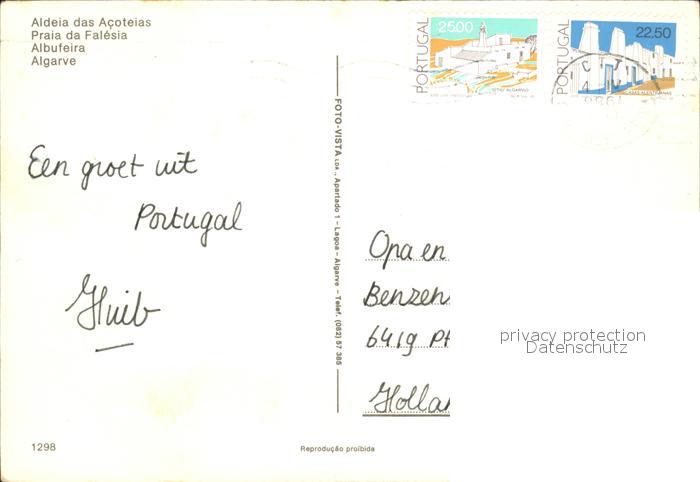 Aldeia das Açoteias
Praia da Falésia
Albufeira
Algarve
PORTUGAL
25.00
SÍTIO ALGARVIO
PORTUGAL
22.50
CASAS ALENTEJANAS
FOTO-VISTA LDA., Apartado 1 - Lagoa - Algarve - Telef. (082) 57 385
Een groet uit
Portugal
Huib
Opa en
Benzen
6419 P
Holla
privacy protection
Datenschutz
1298
Reprodução proíbida